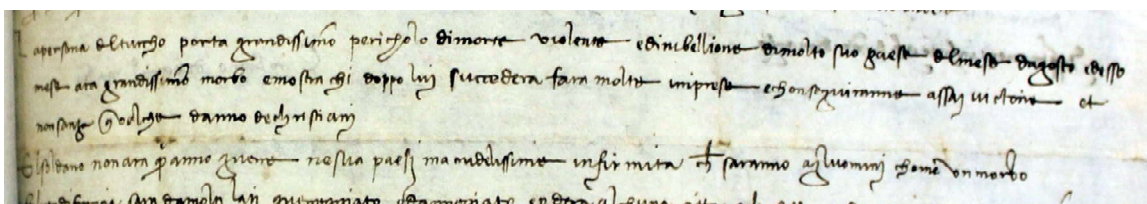 La persona del turcho porta grandissimo pericholo di morte violente e di ribellione di molto suo paese del mese dagosto e desso
mese ara grandissimo morbo e mostra chi doppo lui succedera fara molte imprese e chonseguiranne assai victorie et
non sanza qualche danno de christiani
El soldano non ara questo anno guerre ne sua paesi ma crudelissime infirmita ch saranno agluomini chome un morbo